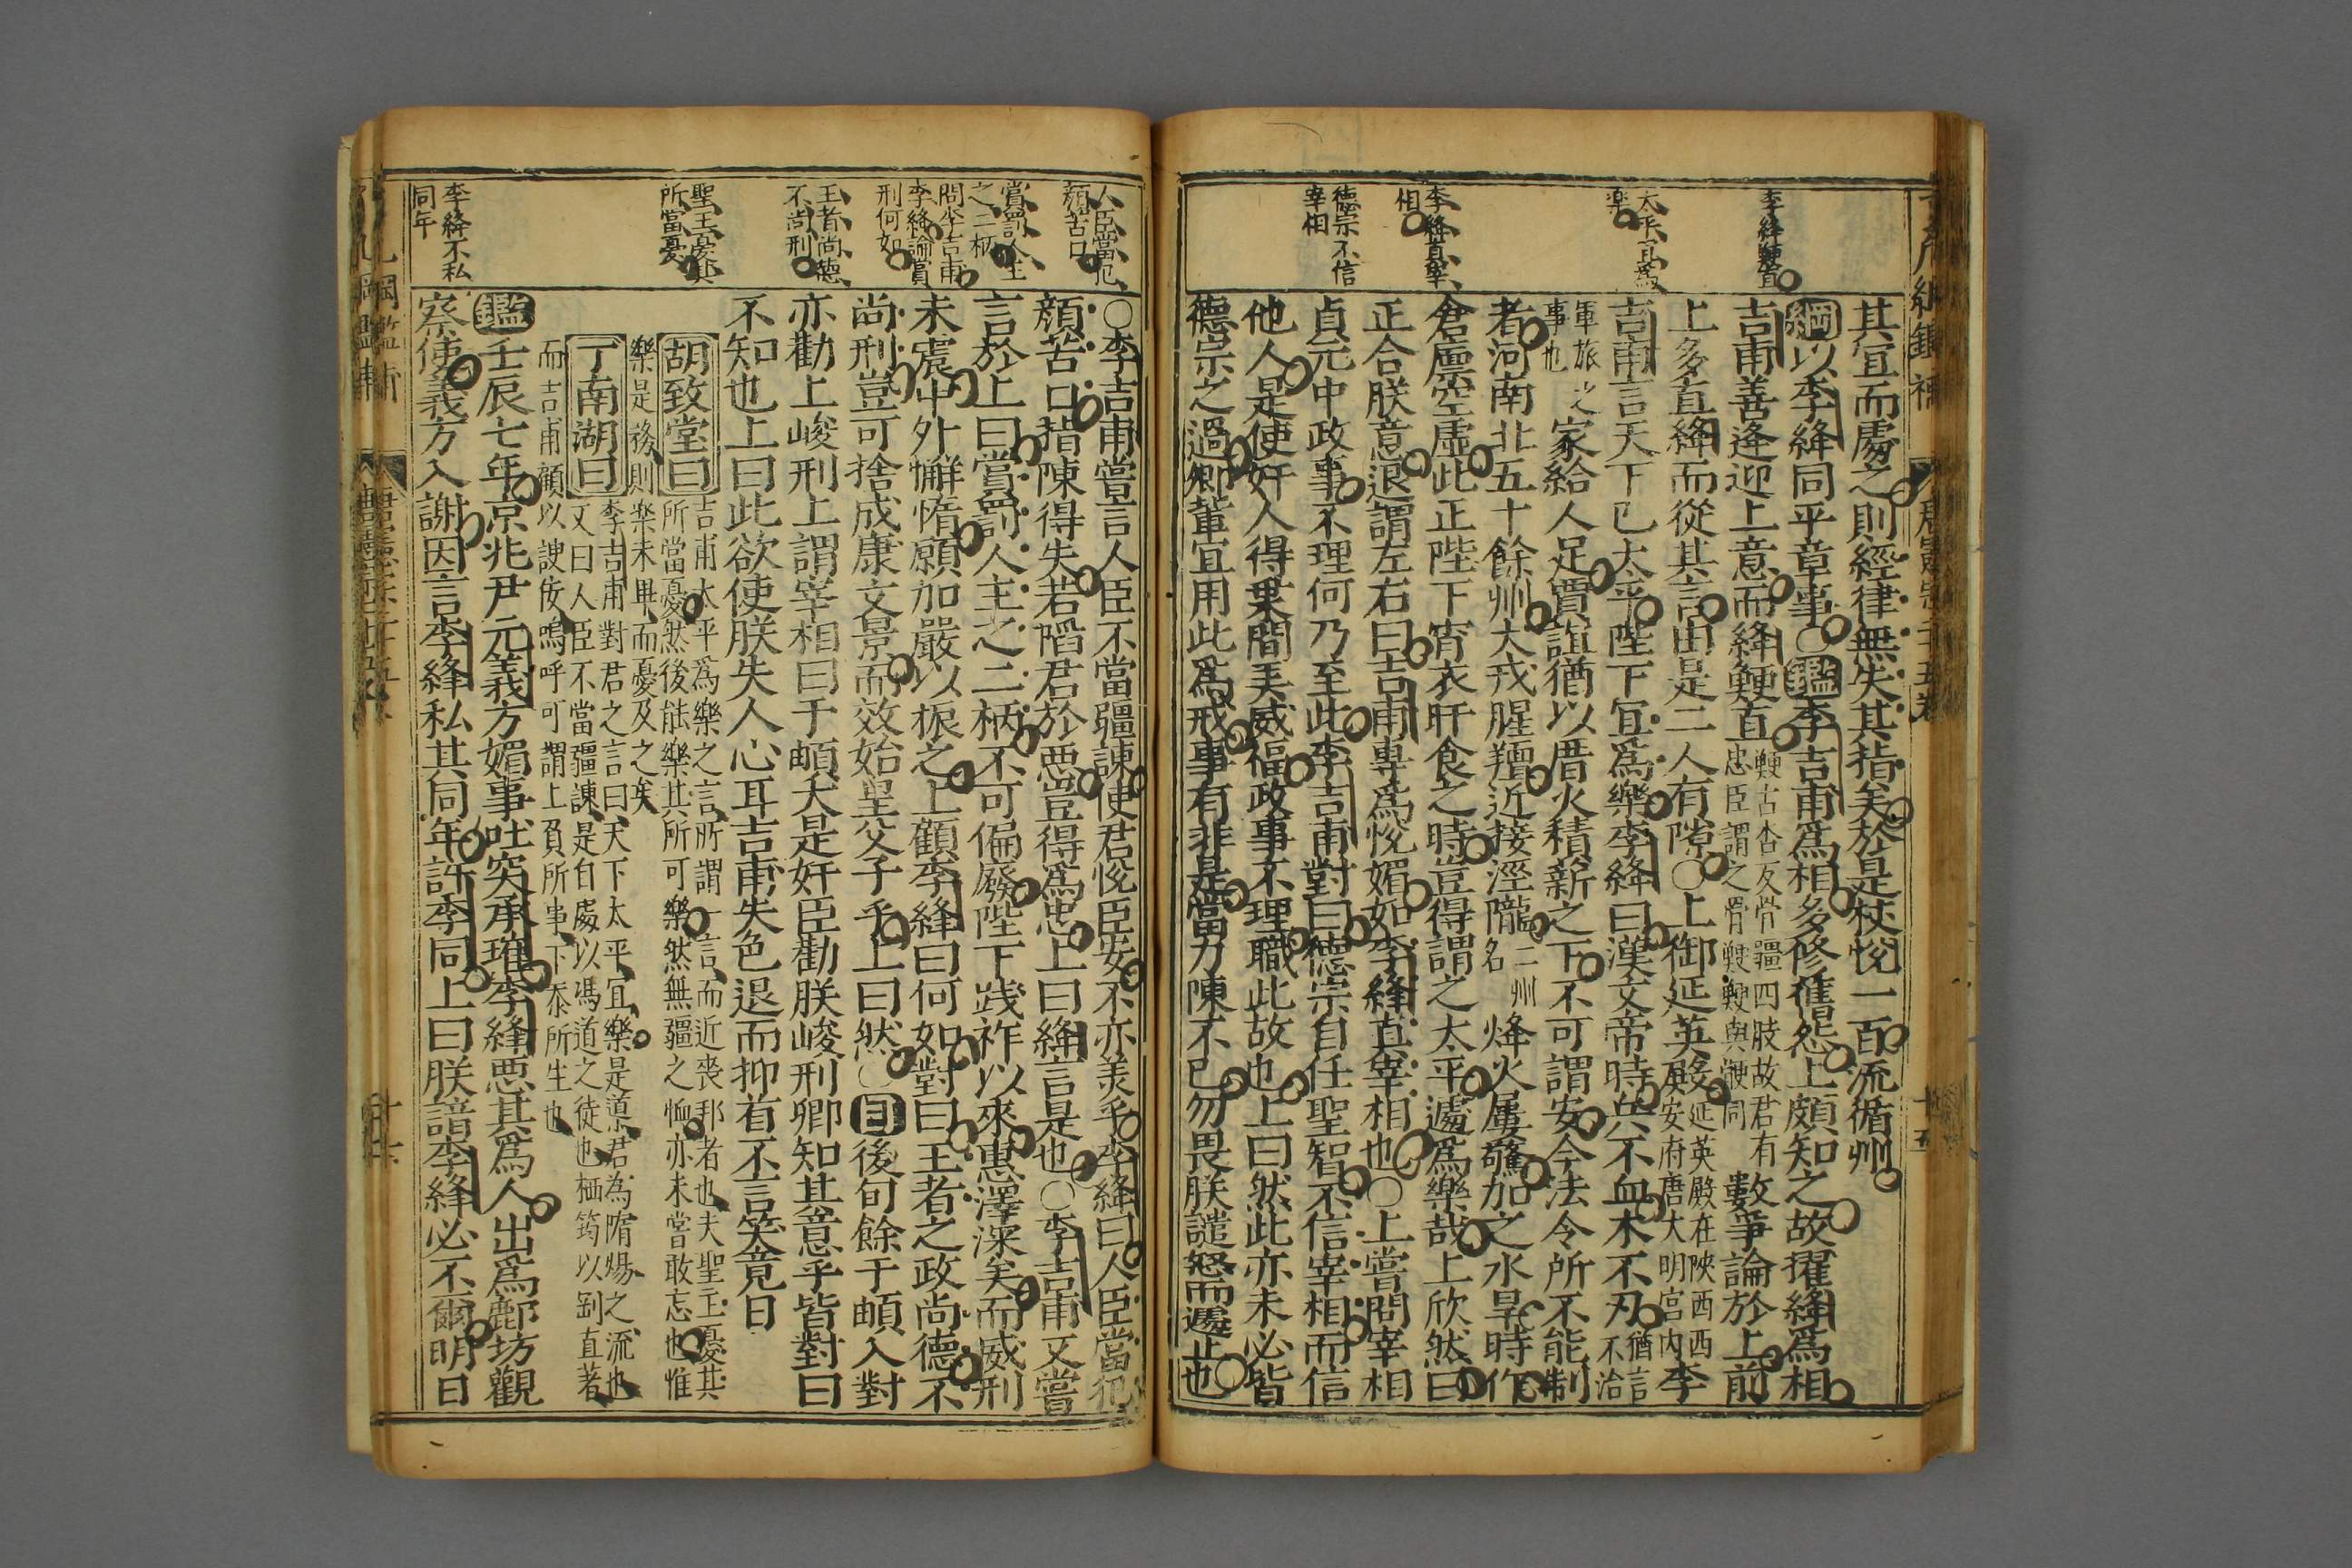 李絳鯁直
太平宜爲
樂
李絳真宰
相
德宗不信
宰相
其宜而處之則經律無失其指矣於是杖悅一百流循州
綱以李絳同平章事○鑑李吉甫爲相多修舊怨上頗知之故擢絳爲相
吉甫善逢迎上意而絳鯁直鯁古杏反骨疆四肢故君有忠臣謂之骨鯁鯁與骾同數爭論於上前
上多直絳而從其言由是二人有隙○上御延英殿延英殿在陝西西安府唐大明宮内李
吉甫言天下已太平陛下宜爲樂李絳曰漢文帝時兵不血木不刃猶言不治
軍旅之事也家給人足賈誼猶以厝火積薪之下不可謂安今法令所不能制
者河南北五十餘州犬戎腥羶近接涇隴二州名烽火屢驚加之水旱時作
倉廩空虛此正陛下宵衣旰食之時豈得謂之太平遽爲樂哉上欣然曰
正合朕意退謂左右曰吉甫專爲悅媚如李絳真宰相也○上嘗問宰相
貞元中政事不理何乃至此李吉甫對曰德宗自任聖智不信宰相而信
他人是使奸人得乗間美威福政事不理職此故也上曰然此亦未必皆
德宗之過卿輩宜用此爲戒事有非是當力陳不已勿畏朕譴怒而遽止也
人臣當犯
顏苦口
賞罰人主
之二柄
問李吉甫
李絳論賞
刑何如
王者尚德
不尚刑
聖王憂其
所當憂
李絳不私
同年
○李吉甫嘗言人臣不當疆諫使君悅臣安不亦美乎李絳曰人臣當犯
顏苦口指陳得失若陷君於惡豈得爲忠上曰絳言是也○李吉甫又嘗
言於上曰賞罰人主之二柄不可偏廢陛下踐祚以來惠澤深矣而威刑
未震中外懈惰願加嚴以振之上顧李絳曰何如對曰王者之政尚德不
尚刑豈可捨成康文景而效始皇父子乎上曰然○目後旬餘于頔入對
亦勸上峻刑上謂宰相曰于頔大是奸臣勸朕峻刑卿知其意乎皆對曰
不知也上曰此欲使朕失人心耳吉甫失色退而抑首不言笑竟日
胡致堂曰吉甫太平爲樂之言所謂一言而近喪邦者也夫聖王憂其
所當憂然後能樂其所可樂然無疆之恤亦未嘗敢忘也惟
樂是務則樂未畢而憂及之矣
丁南湖曰李吉甫對君之言曰天下太平宜樂是道君為隋煬之流也
又曰人臣不當疆諫是自處以馮道之徒也栖筠以剴直著
而吉甫顧以諛佞嗚呼可謂上負所事下忝所生也
鑑壬辰七年京兆尹元義方媚事吐突承璀李絳惡其爲人出爲鄜坊觀
察使義方入謝因言李絳私其同年許季同上曰朕諳李絳必不爾明日